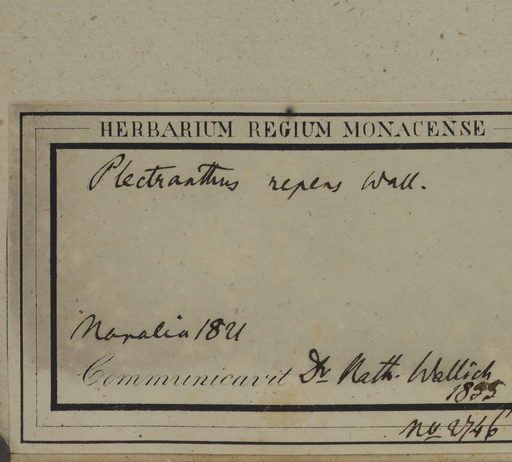 HERBARIUM REGIUM MONACENSE
Plectranthus repens Wall.
Napalia 1821
Communicavit Dr Nath. Wallich
1835
No 2746